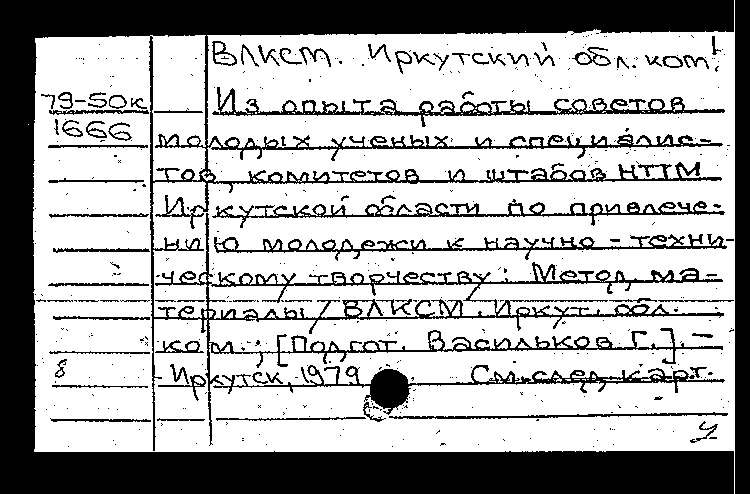 ВЛКСМ. Иркутский обл. ком.
79-50к
1666
Из опыта работы советов
молодых ученых и специалис-
тов, комитетов и штабов НТТМ
Иркутской области по привлече-
нию молодежи к научно-техни-
ческому творчеству: Метод. ма-
териалы / ВЛКСМ. Иркут. обл.
ком.; [Подгот. Васильков Г.]. —
8
Иркутск, 1979
См. след. карт.